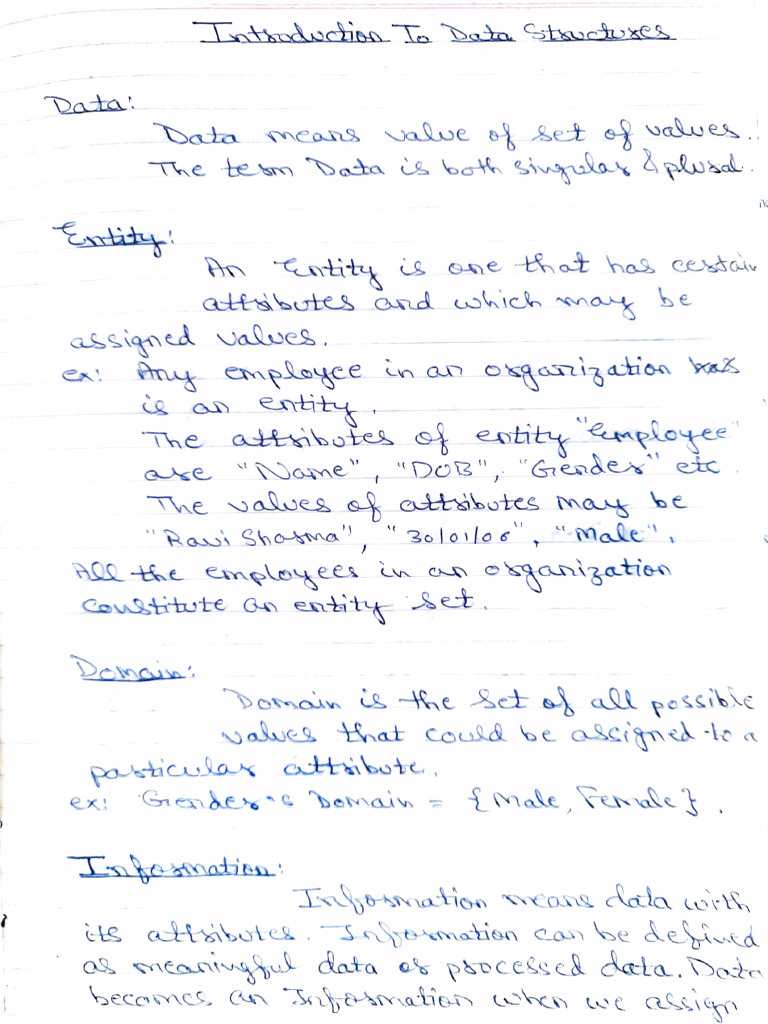 Introduction To Data Structures
Data:
Data means value of set of values.
The term Data is both singular & plural.
Entity:
An Entity is one that has certain
attributes and which may be
assigned values.
ex: Any employee in an organization
is an entity.
The attributes of entity "Employee"
are "Name", "DOB", "Gender" etc
The values of attributes may be
"Ravi Sharma", "30/01/06", "Male".
All the employees in an organization
constitute an entity set.
Domain:
Domain is the set of all possible
values that could be assigned to a
particular attribute.
ex: Gender's Domain = {Male, Female}.
Information:
Information means data with
its attributes. Information can be defined
as meaningful data or processed data. Data
becomes an Information when we assign